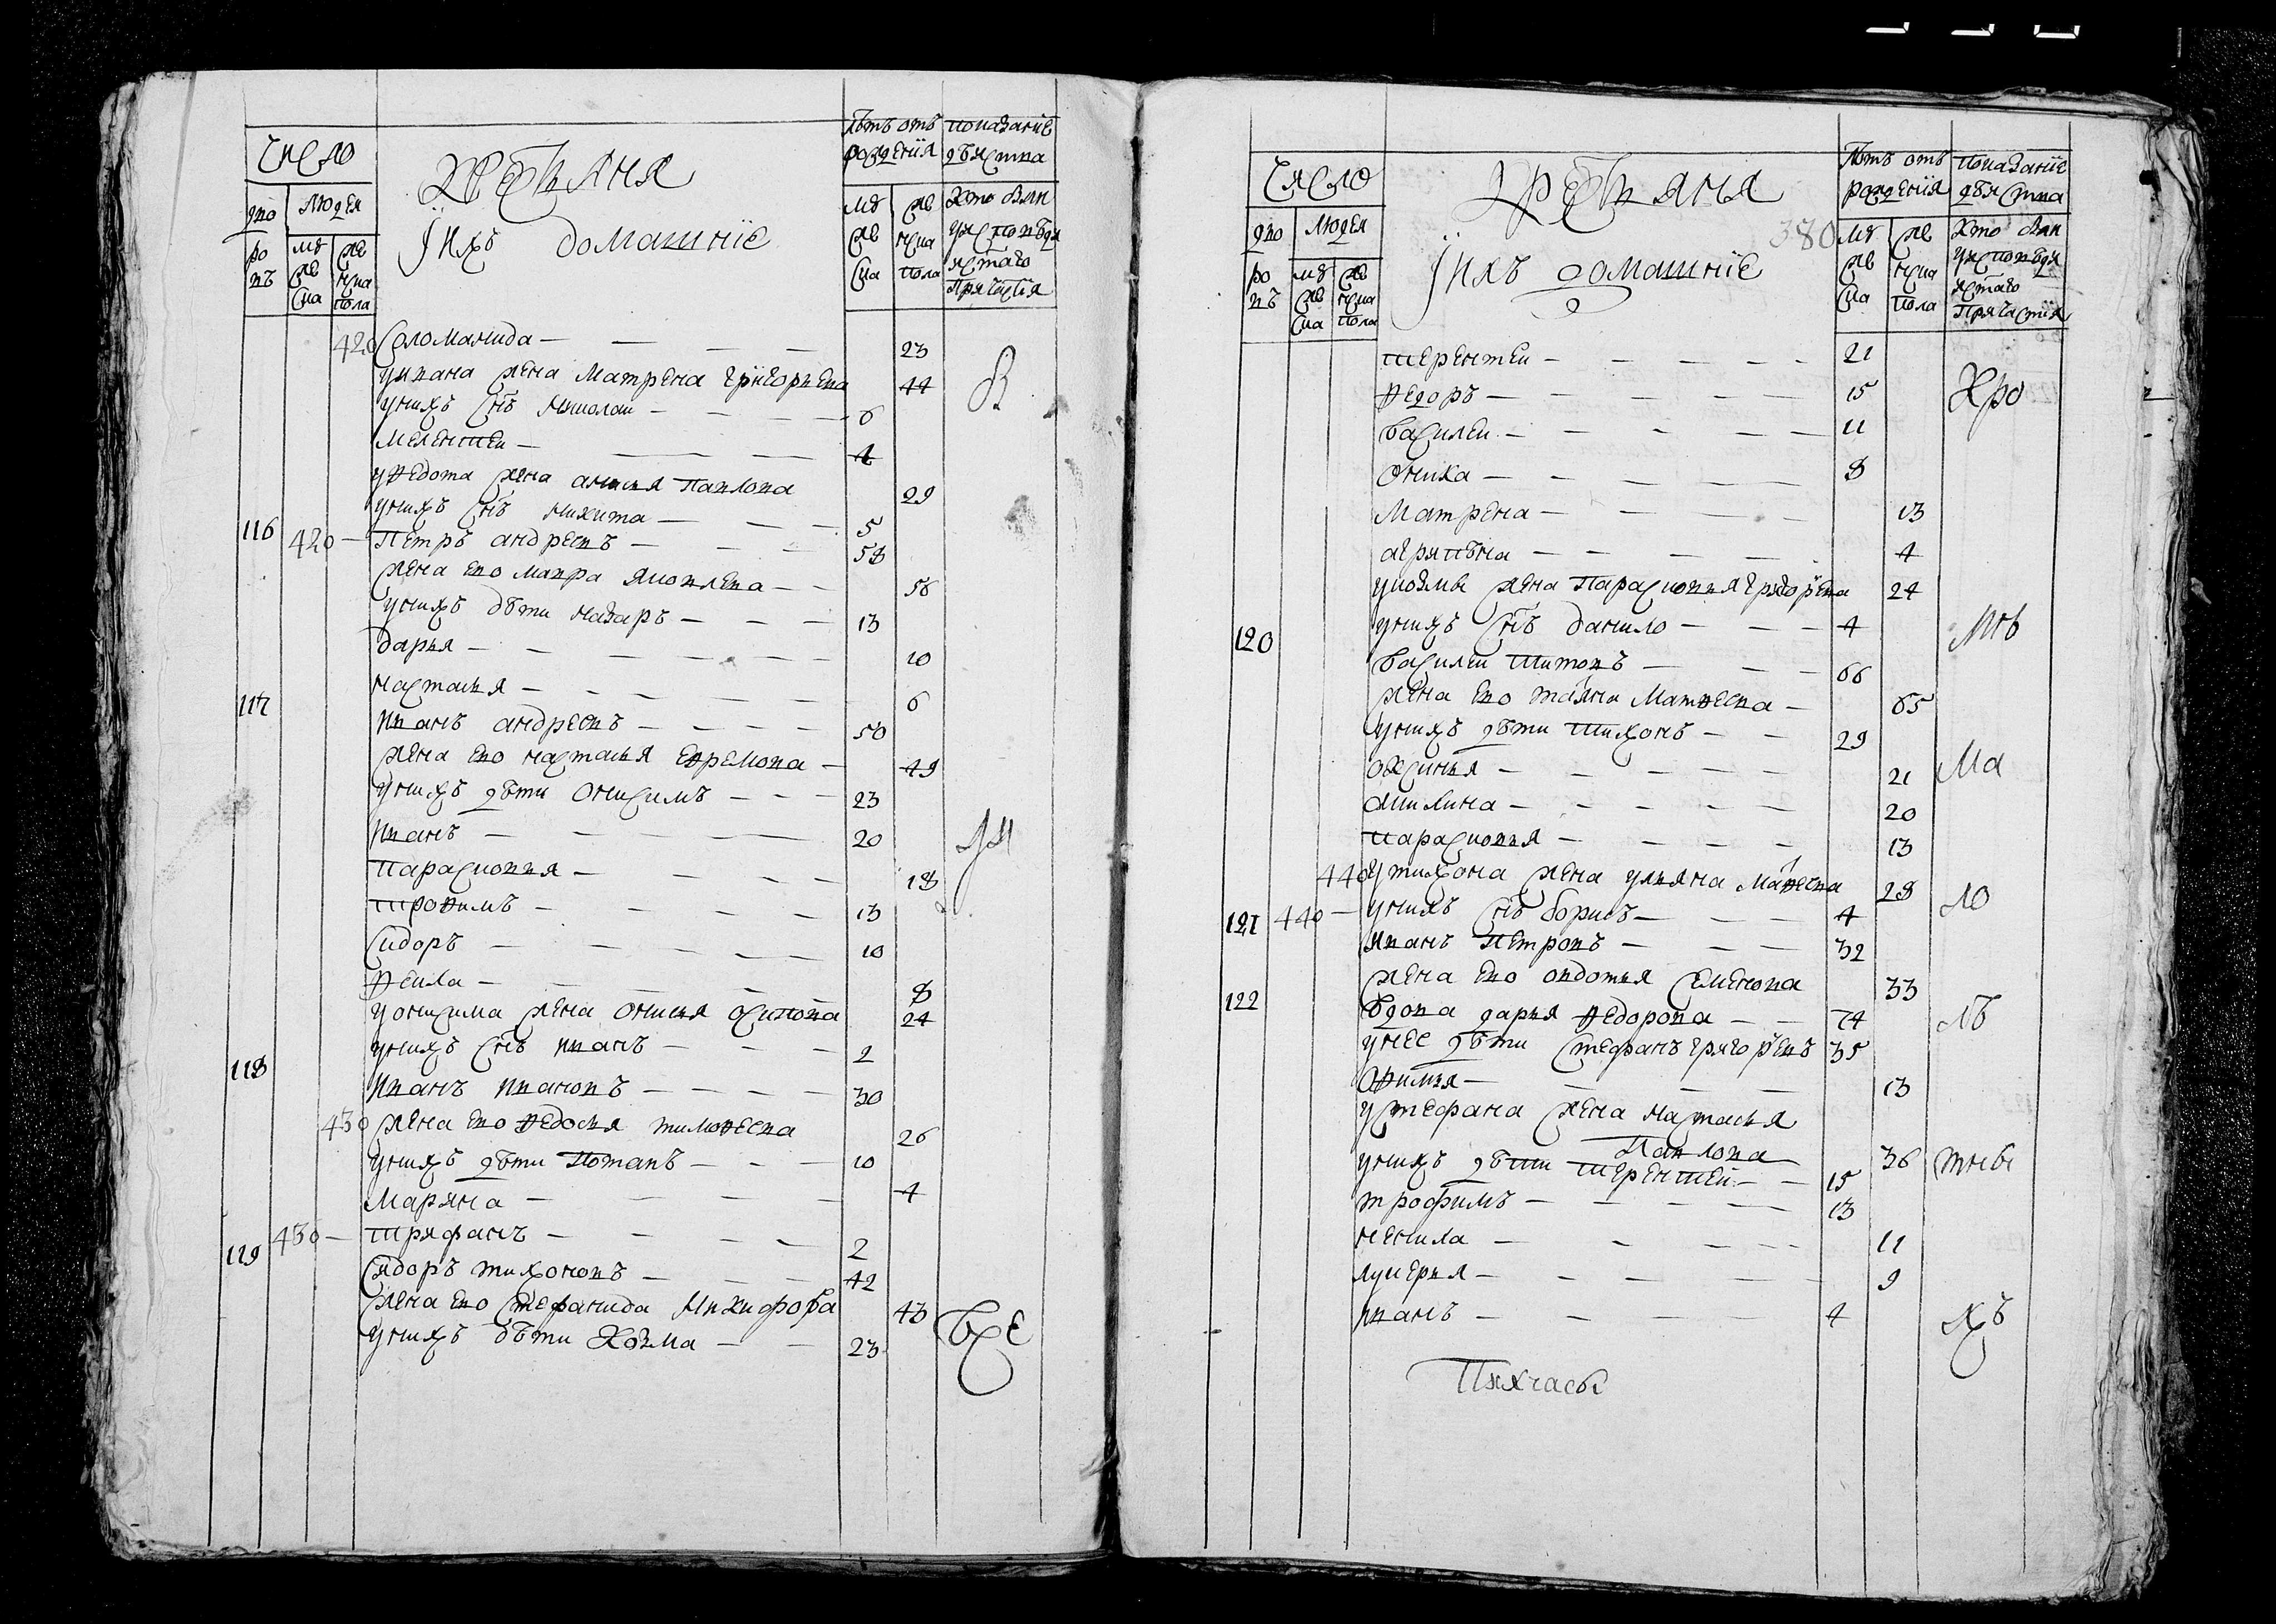 Число
дво ровъ
людей
муже ска
женска пола
Хрестьяня
Їихъ домашнїе
лѣтъ отъ рождениїя
муже ска
женска пола
показанїе дѣиства
Хто былъ у исповѣди и стаго причастїя
420 Соломанида — 23
у ивана жена Матрена Григорьева 44
у нихъ снъ Николаи — 6
Мелентеи — 4
у Федота жена анисья Павлова 29
у нихъ снъ никита — 5
116 420 — Петръ андреевъ — 58
жена ево мавра яковлева — 56
у нихъ дѣти назаръ — 13
дарья — 10
настасья — 6
117 иванъ андреевъ — 50
жена ево настасья Ефремова — 49
у нихъ дѣти Онисимъ — 23
иванъ — 20
парасковья — 18
трофимъ — 13
Сидоръ — 10
Фекла — 8
у онисима жена Онисья осипова 24
у нихъ снъ иванъ — 2
118 иванъ ивановъ — 30
430 жена ево Федосья тимофеева 26
у нихъ дѣти Потапъ — 10
Марина — 4
430 — трифанъ — 2
119 Сидоръ тихоновъ — 42
жена ево Стефанида Никифорова 43
у нихъ дѣти Козма — 23
Все
Число
дво ровъ
людей
муже ска
женска пола
Хрестьяня
Їихъ домашнїе
380
Лѣтъ отъ рожденїя
муже ска
женска пола
показанїе дѣиства
Хто былъ у исповѣди и стаго причастия
терентеи — 21
Федоръ — 15
Василеи — 11
Оника — 8
Матрена — 13
агрипѣна — 4
у козмы жена Парасковья Григорьева 24
у нихъ снъ данило — 4
120 Василеи титовъ — 66
жена ево татяна Матвеева — 65
у нихъ дѣти тихонъ — 29
оксинья — 21
акилина — 20
парасковья — 13
440 у тихона жена ульяна Матвеева 28
440 — у нихъ снъ борисъ — 4
121 иванъ Петровъ — 32
жена ево овдотья Семенова 33
122 Вдова дарья Федорова — 74
у нее дѣти Стефанъ григорьевъ 35
Офимья — 13
у стефана жена настасья
Павлова 36
у нихъ дѣти терентеи — 15
трофимъ — 13
ненила — 11
лукерья — 9
иванъ — 4